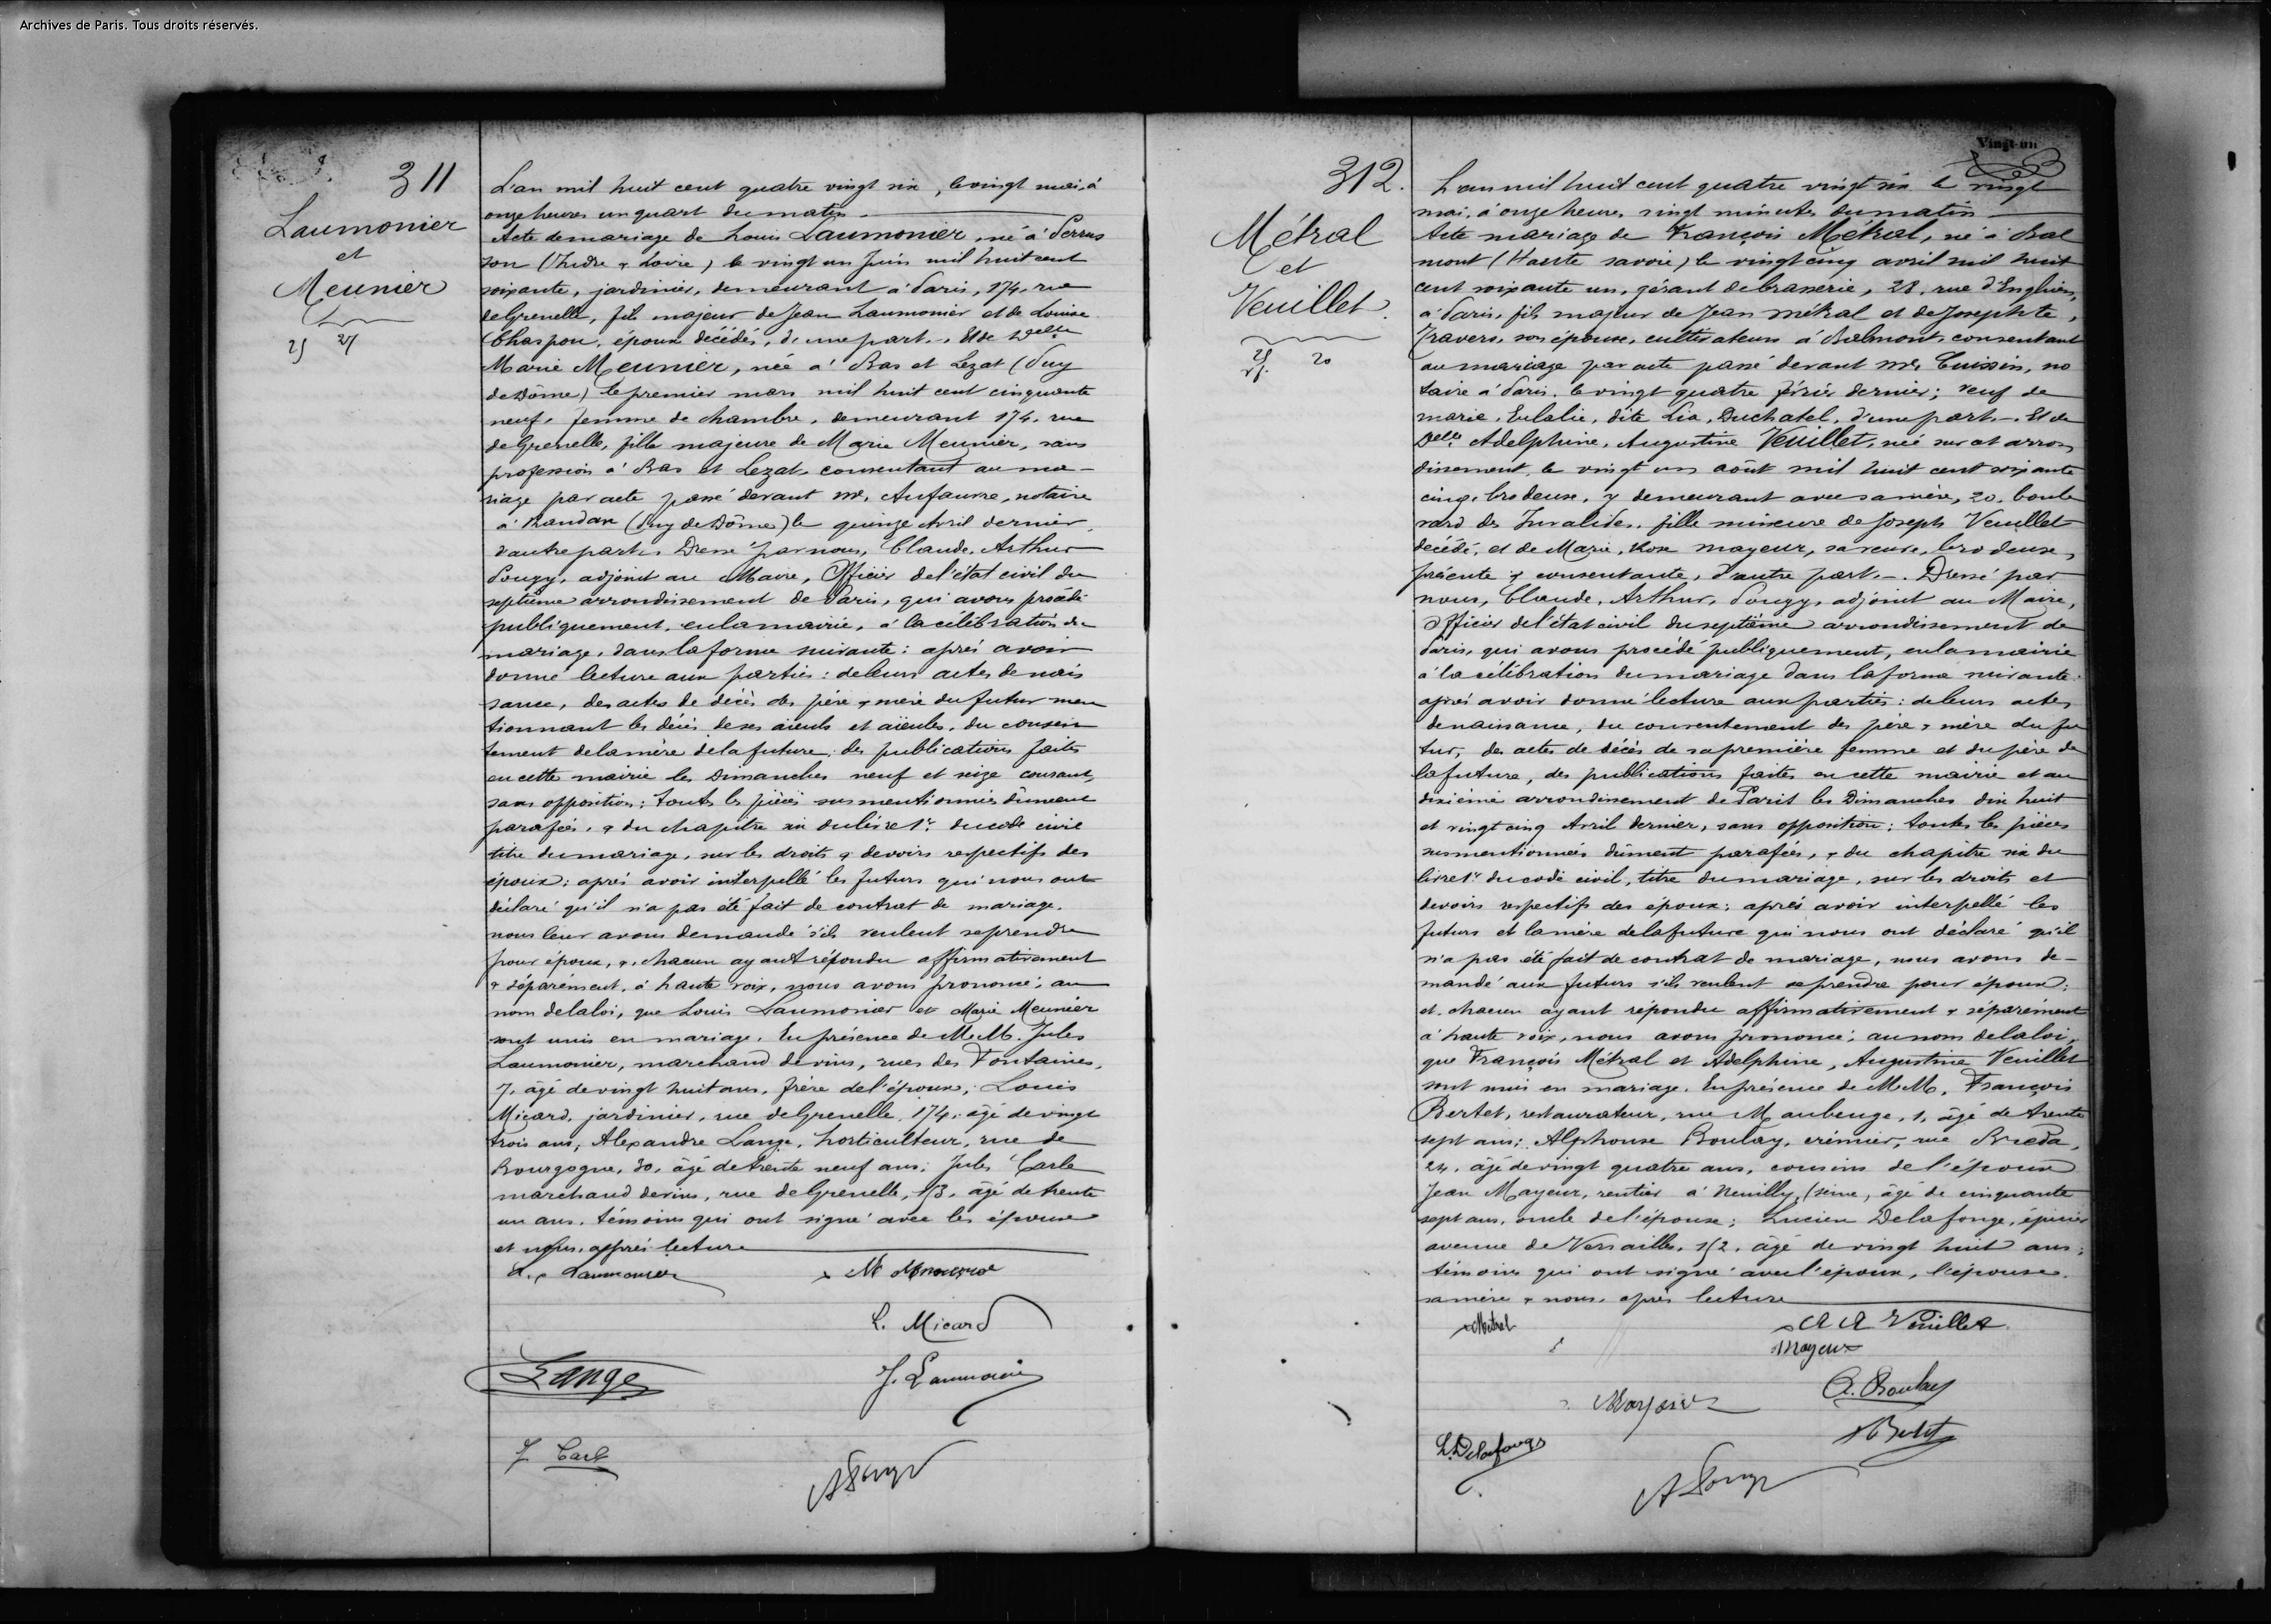 Archives de Paris. Tous droits réservés.
311
Laumonier
et
Meunier
25 27
L'an mil huit cent quatre vingt six, le vingt mai, à
onze heures un quart du matin
Acte de mariage de Louis Laumonier, né à Perrus
son (Indre & Loire) le vingt un Juin mil huit cent
soixante, jardinier, demeurant à Paris, 174, rue
de Grenelle, fils majeur de Jean Laumonier et de Louise
Chaspou, époux décédés, d'une part. Et de Delle
Marie Meunier, née à Bas et Lezat (Puy
de Dôme) le premier mars mil huit cent cinquante
neuf, femme de chambre, demeurant 174, rue
de Grenelle, fille majeure de Marie Meunier, sans
profession à Bas et Lezat, consentant au ma-
riage par acte passé devant Me, Aufauvre, notaire
à Randan (Puy de Dôme) le quinze Avril dernier,
d'autre part. Dressé par nous, Claude, Arthur
Pougy, adjoint au Maire, Officier de l'état civil du
septième arrondissement de Paris, qui avons procédé
publiquement, en la mairie, à la célébration du
mariage, dans la forme suivante: après avoir
donné lecture aux parties: de leurs actes de nais
sance, des actes de décès des père & mère du futur men
tionnant les décès de ses aïeuls et aïeules, du consen
tement de la mère de la future, des publications faites
en cette mairie les Dimanches neuf et seize courant,
sans opposition; toutes les pièces susmentionnées dûment
parafées, & du chapitre six du livre 1er du code civil
titre du mariage, sur les droits & devoirs respectifs des
époux: après avoir interpellé les futurs qui nous ont
déclaré qu'il n'a pas été fait de contrat de mariage,
nous leur avons demandé s'ils veulent se prendre
pour époux, &, chacun ayant répondu affirmativement
& séparément, à haute voix, nous avons prononcé, au
nom de la loi, que Louis Laumonier et Marie Meunier
sont unis en mariage. En présence de M.M. Jules
Laumonier, marchand de vins, rue des Fontaines,
7, âgé de vingt huit ans, frère de l'époux; Louis
Micard, jardinier, rue de Grenelle, 174, âgé de vingt
trois ans; Alexandre Lange, horticulteur, rue de
Bourgogne, 30, âgé de trente neuf ans; Jules Carle
marchand de vins, rue de Grenelle, 153, âgé de trente
un ans, témoins qui ont signé avec les époux
et nous, après lecture
L. Laumonier M Meunier
L. Micard
Lange J. Laumonier
J Carle
A Pougy
Vingt-un
312.
Métral
et
Veuillet.
25 20
L'an mil huit cent quatre vingt six le vingt
mai, à onze heures vingt minutes du matin
Acte mariage de François Métral, né à Bal
mont (Haute savoie) le vingt cinq avril mil huit
cent soixante un, gérant de brasserie, 28, rue d'Enghien,
à Paris, fils majeur de Jean Métral et de Josephte,
Travers, son épouse, cultivateurs à Balmont, consentant
au mariage par acte passé devant Me, Cuissin, no
taire à Paris, le vingt quatre février dernier; veuf de
Marie, Eulalie, dite Lia, Duchatel, d'une part. Et de
Delle Adelphine, Augustine Veuillet, née sur cet arron
dissement, le vingt un août mil huit cent soixante
cinq, brodeuse, y demeurant avec sa mère, 20, boule
vard des Invalides, fille mineure de Joseph Veuillet
décédé, et de Marie, Rose Mayeur, sa veuve, brodeuse,
présente & consentante, d'autre part. Dressé par
nous, Claude, Arthur, Pougy, adjoint au Maire,
Officier de l'état civil du septième arrondissement de
Paris, qui avons procédé publiquement, en la mairie
à la célébration du mariage dans la forme suivante:
après avoir donné lecture aux parties: de leurs actes
de naissance, du consentement des père & mère du fu
tur, des actes de décès de sa première femme et du père de
la future, des publications faites en cette mairie et au
dixième arrondissement de Paris les Dimanches dix huit
et vingt cinq Avril dernier, sans opposition; toutes les pièces
susmentionnées dûment parafées, & du chapitre six du
livre 1er du code civil, titre du mariage, sur les droits et
devoirs respectifs des époux: après avoir interpellé les
futurs et la mère de la future qui nous ont déclaré qu'il
n'a pas été fait de contrat de mariage, nous avons de-
mandé aux futurs s'ils veulent se prendre pour époux:
et, chacun ayant répondu affirmativement & séparément
à haute voix, nous avons prononcé, au nom de la loi,
que François Métral et Adelphine, Augustine Veuillet
sont unis en mariage. En présence de M.M. François
Bertet, restaurateur, rue Maubeuge, 1, âgé de trente
sept ans; Alphonse Boulay, crémier, rue Breda,
24, âgé de vingt quatre ans, cousins de l'époux
Jean Mayeur, rentier à Neuilly, (seine, âgé de cinquante
sept ans, oncle de l'épouse; Lucien Delafonge, épicier
avenue de Versailles, 152, âgé de vingt huit ans;
témoins qui ont signé avec l'époux, l'épouse,
sa mère & nous, après lecture
Métral A A Veuillet
Mayeur
A. Boulay
Mayeur
Bertet
L. Delafonge
A Pougy